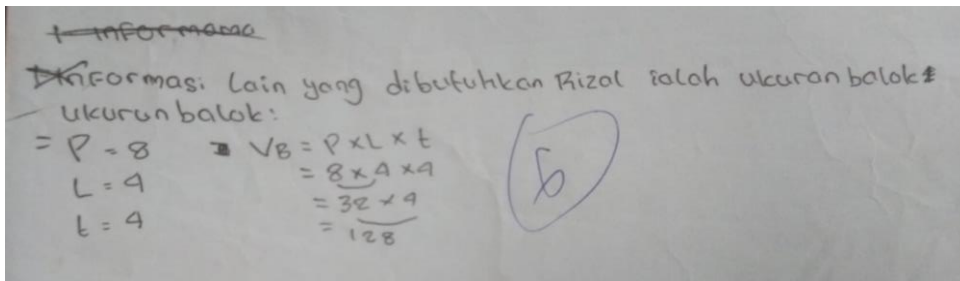 Informasi lain yang dibutuhkan Rizal ialah ukuran balok
ukuran balok:
= P = 8
L = 4
t = 4
VB = P x L x t
= 8 x 4 x 4
= 32 x 4
= 128